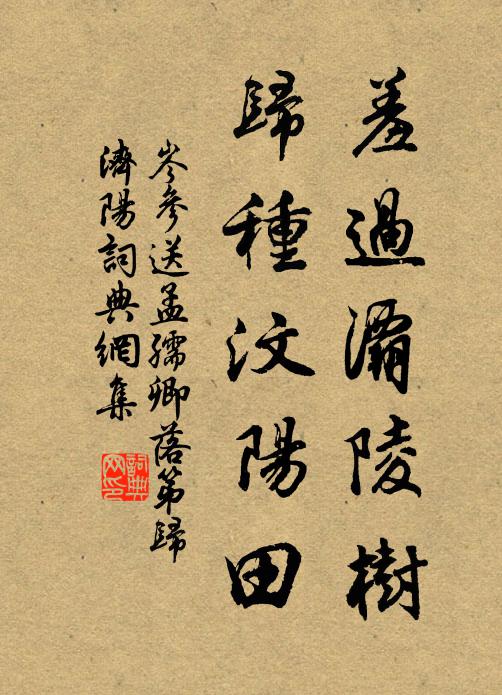 羞過灞陵樹
歸種汶陽田
岑參送孟孺卿落第歸
濟陽詞典網集
詞典網印